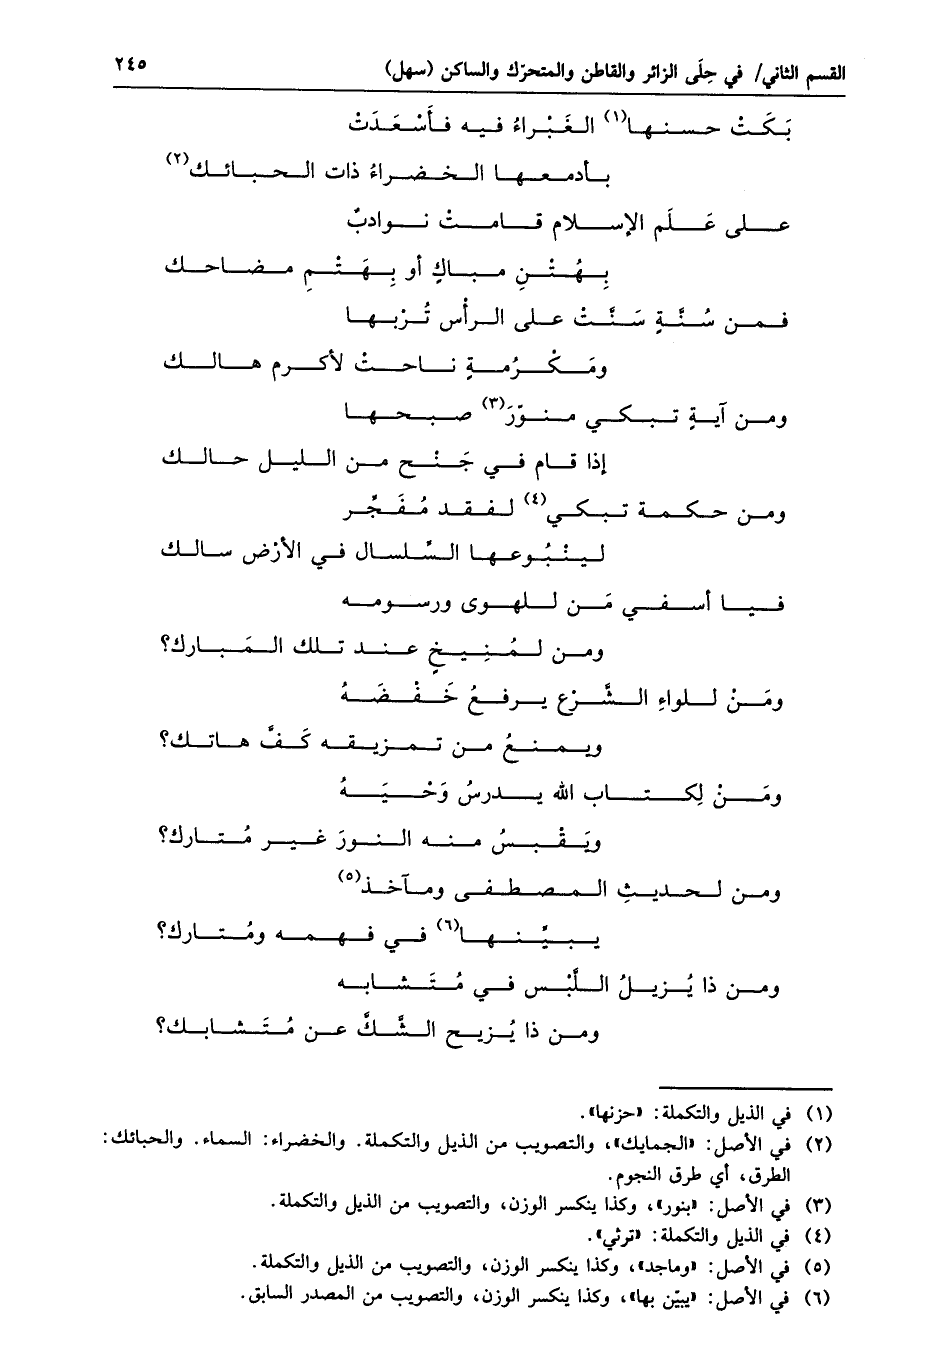 القسم الثاني/ في حِلَى الزائر والقاطن والمتحرّك والساكن (سهل) ٢٤٥
بَكَتْ حسنها(١) الغَبْراءُ فيه فأَسْعَدَتْ
بأدمعها الخضراءُ ذات الحبائك(٢)
على عَلَم الإسلام قامتْ نوادبٌ
بِهُتْنِ مباكٍ أو بِهَتْمِ مضاحك
فمن سُنَّةٍ سَنَّتْ على الرأس تُرْبها
ومَكْرُمةٍ ناحتْ لأكرم هالك
ومن آيةٍ تبكي منوّرَ(٣) صبحها
إذا قام في جَنْح من الليل حالك
ومن حكمة تبكي(٤) لفقد مُفَجِّر
لينْبُوعها السَّلسال في الأرْض سالك
فيا أسفي مَن للهوى ورسومه
ومن لمُنِيخٍ عند تلك المَبارك؟
ومَنْ للواءِ الشَّرْع يرفعُ خَفْضَهُ
ويمنعُ من تمزيقه كَفَّ هاتك؟
ومَنْ لِكتاب الله يدرسُ وَحْيَهُ
ويَقْبسُ منه النورَ غير مُتارك؟
ومن لحديثِ المصطفى ومآخذ(٥)
يبيِّنها(٦) في فهمه ومُتارك؟
ومن ذا يُزيلُ اللَّبْس في مُتَشابه
ومن ذا يُزيح الشَّكَّ عن مُتَشابك؟
(١) في الذيل والتكملة: «حزنها».
(٢) في الأصل: «الجمايك»، والتصويب من الذيل والتكملة. والخضراء: السماء. والحبائك:
الطرق، أي طرق النجوم.
(٣) في الأصل: «بنور»، وكذا ينكسر الوزن، والتصويب من الذيل والتكملة.
(٤) في الذيل والتكملة: «ترثي».
(٥) في الأصل: «وماجد»، وكذا ينكسر الوزن، والتصويب من الذيل والتكملة.
(٦) في الأصل: «يبيّن بها»، وكذا ينكسر الوزن، والتصويب من المصدر السابق.